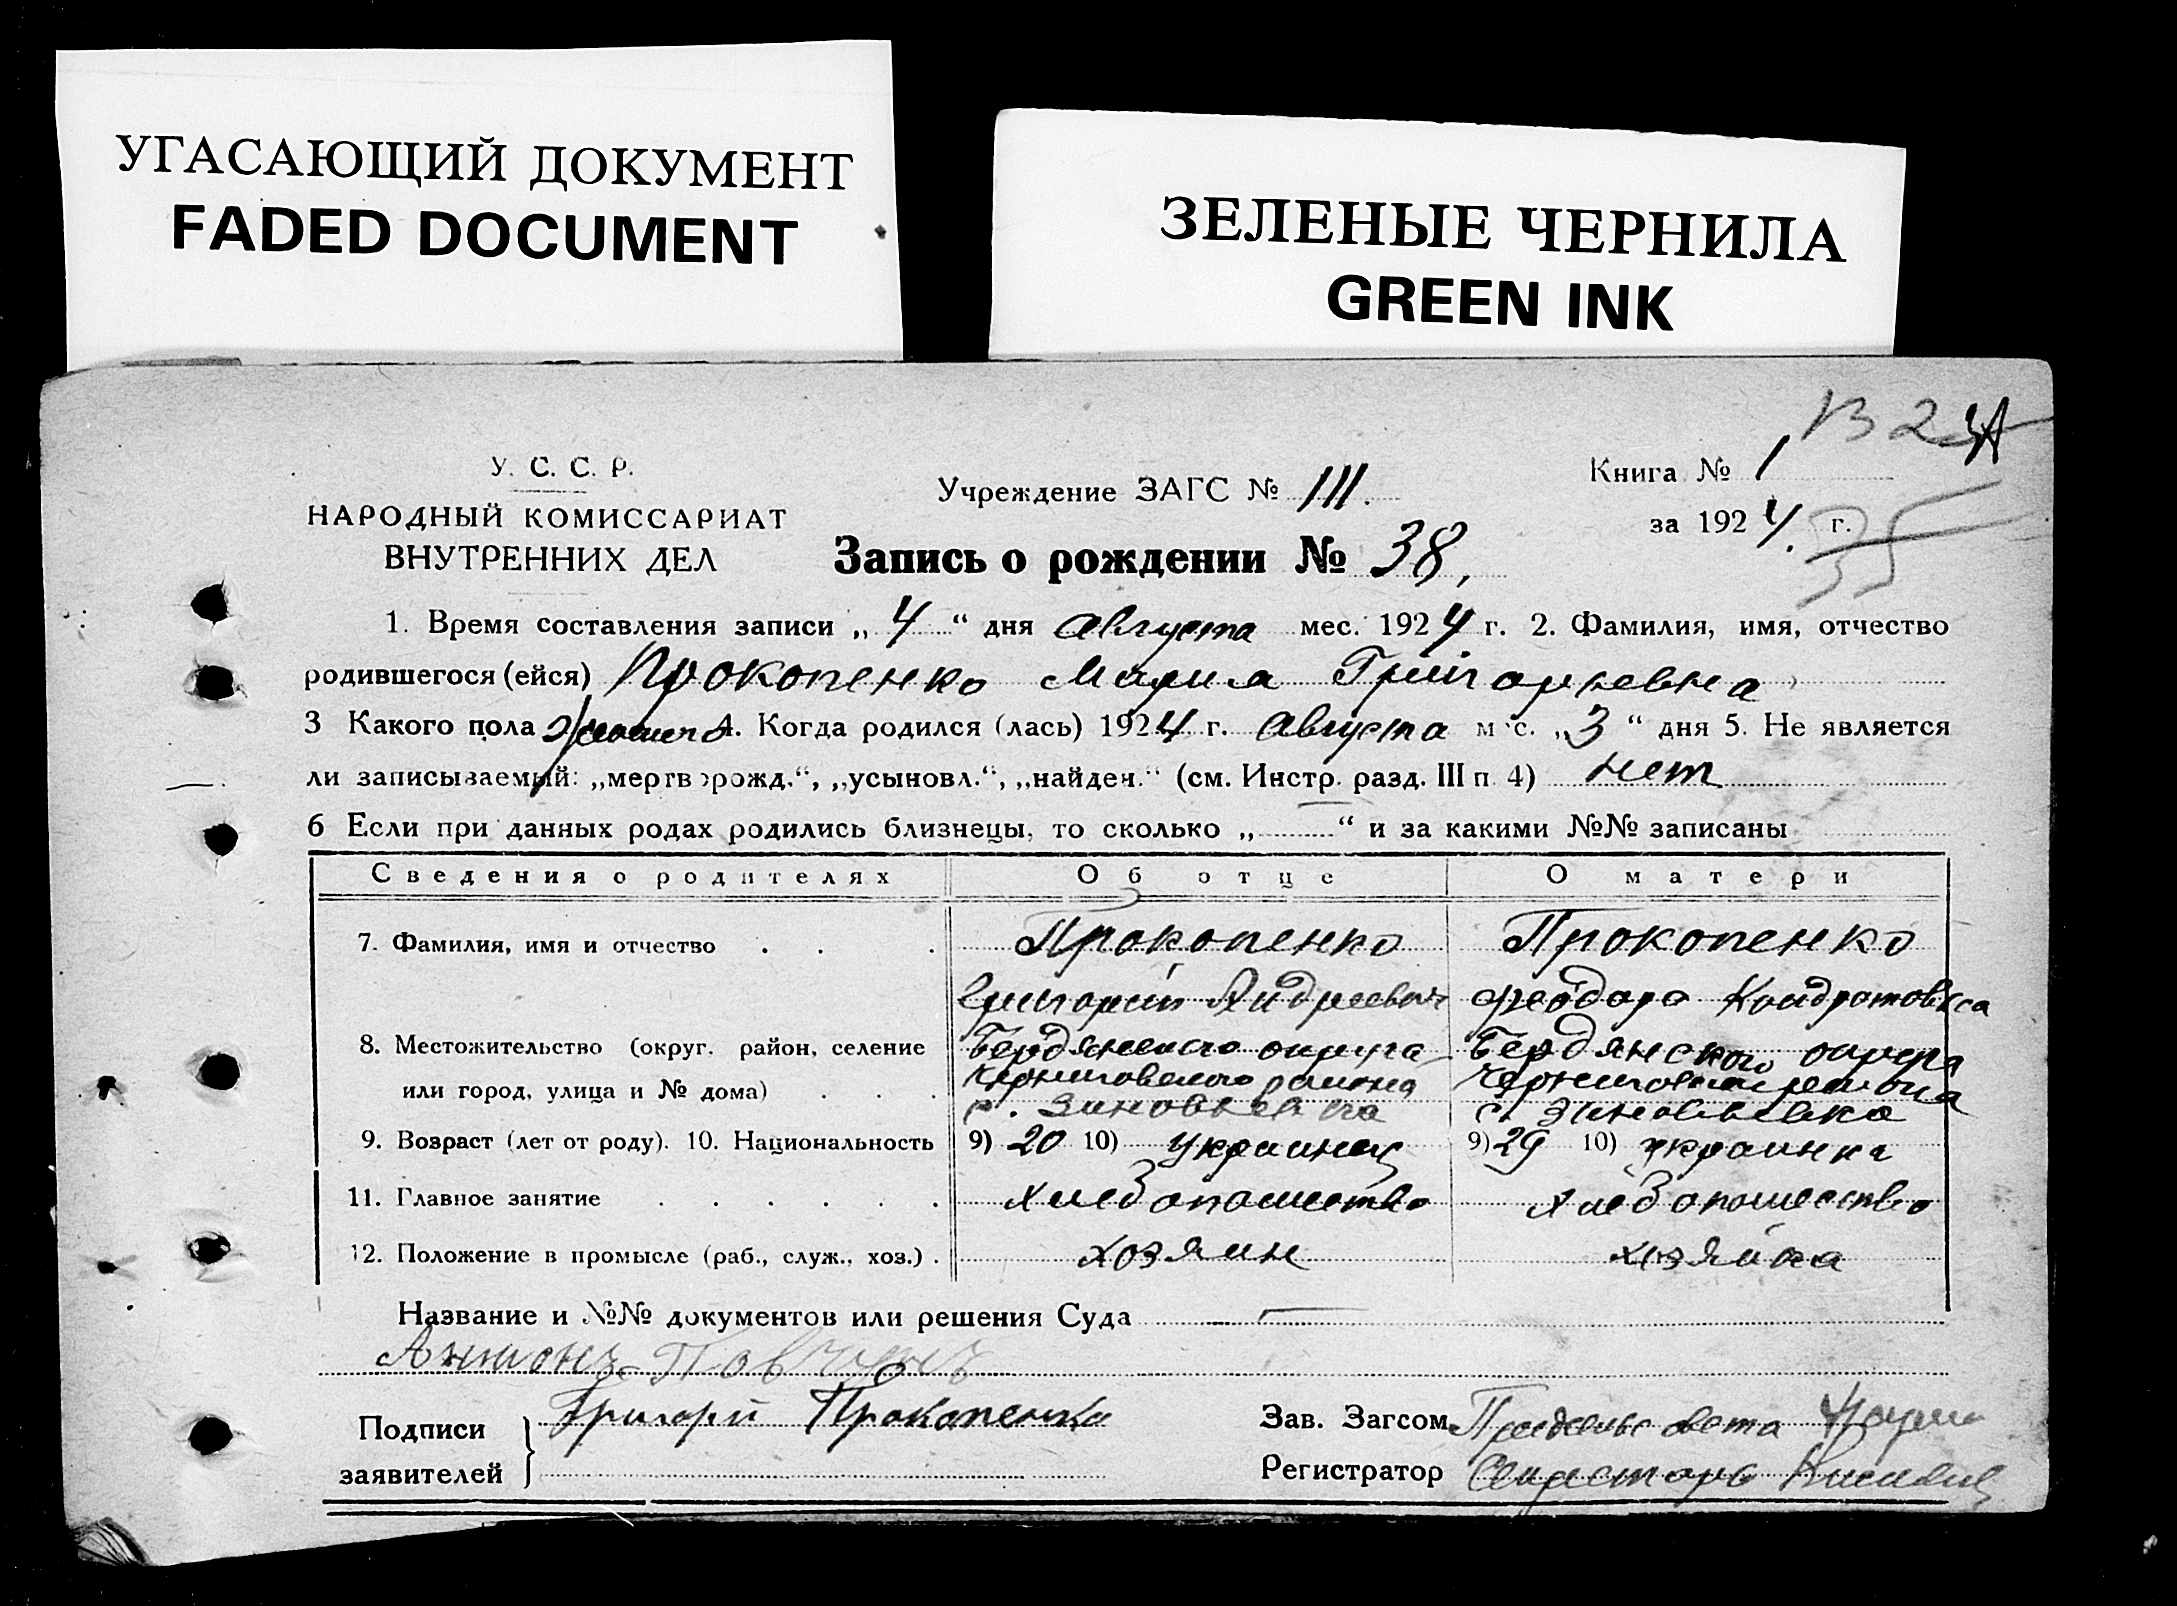 УГАСАЮЩИЙ ДОКУМЕНТ
FADED DOCUMENT
ЗЕЛЕНЫЕ ЧЕРНИЛА
GREEN INK
У. С. С. Р.
НАРОДНЫЙ КОМИССАРИАТ
ВНУТРЕННИХ ДЕЛ
Учреждение ЗАГС № III.
Книга № 1
за 1924 г.
35
Запись о рождении № 38,
1. Время составления записи „ 4 “ дня Августа мес. 1924 г. 2. Фамилия, имя, отчество
родившегося (ейся) Прокопенко Мария Григорьевна
3 Какого пола 4. Когда родился (лась) 1924 г. Августа мес. „ 3 “ дня 5. Не является
ли записываемый: „мертворожд.“, „усыновл.“, „найден.“ (см. Инстр. разд. III п. 4) нет
6 Если при данных родах родились близнецы, то сколько „ “ и за какими №№ записаны
Сведения о родителях Об отце О матери
7. Фамилия, имя и отчество Прокопенко Прокопенко
Григорий Андреевич Феодора Кондратовна
8. Местожительство (округ. район, селение Бердянского округа Бердянского округа
или город, улица и № дома) Черниговского района Черниговского района
с. Зиновьевка с. Зиновьевка
9. Возраст (лет от роду). 10. Национальность 9) 20 10) украинец 9) 29 10) украинка
11. Главное занятие хлебопашество хлебопашество
12. Положение в промысле (раб., служ., хоз.) хозяин хозяйка
Название и №№ документов или решения Суда
Антонъ
Подписи Григорий Прокопенко Зав. Загсом
заявителей Регистратор Секретарь